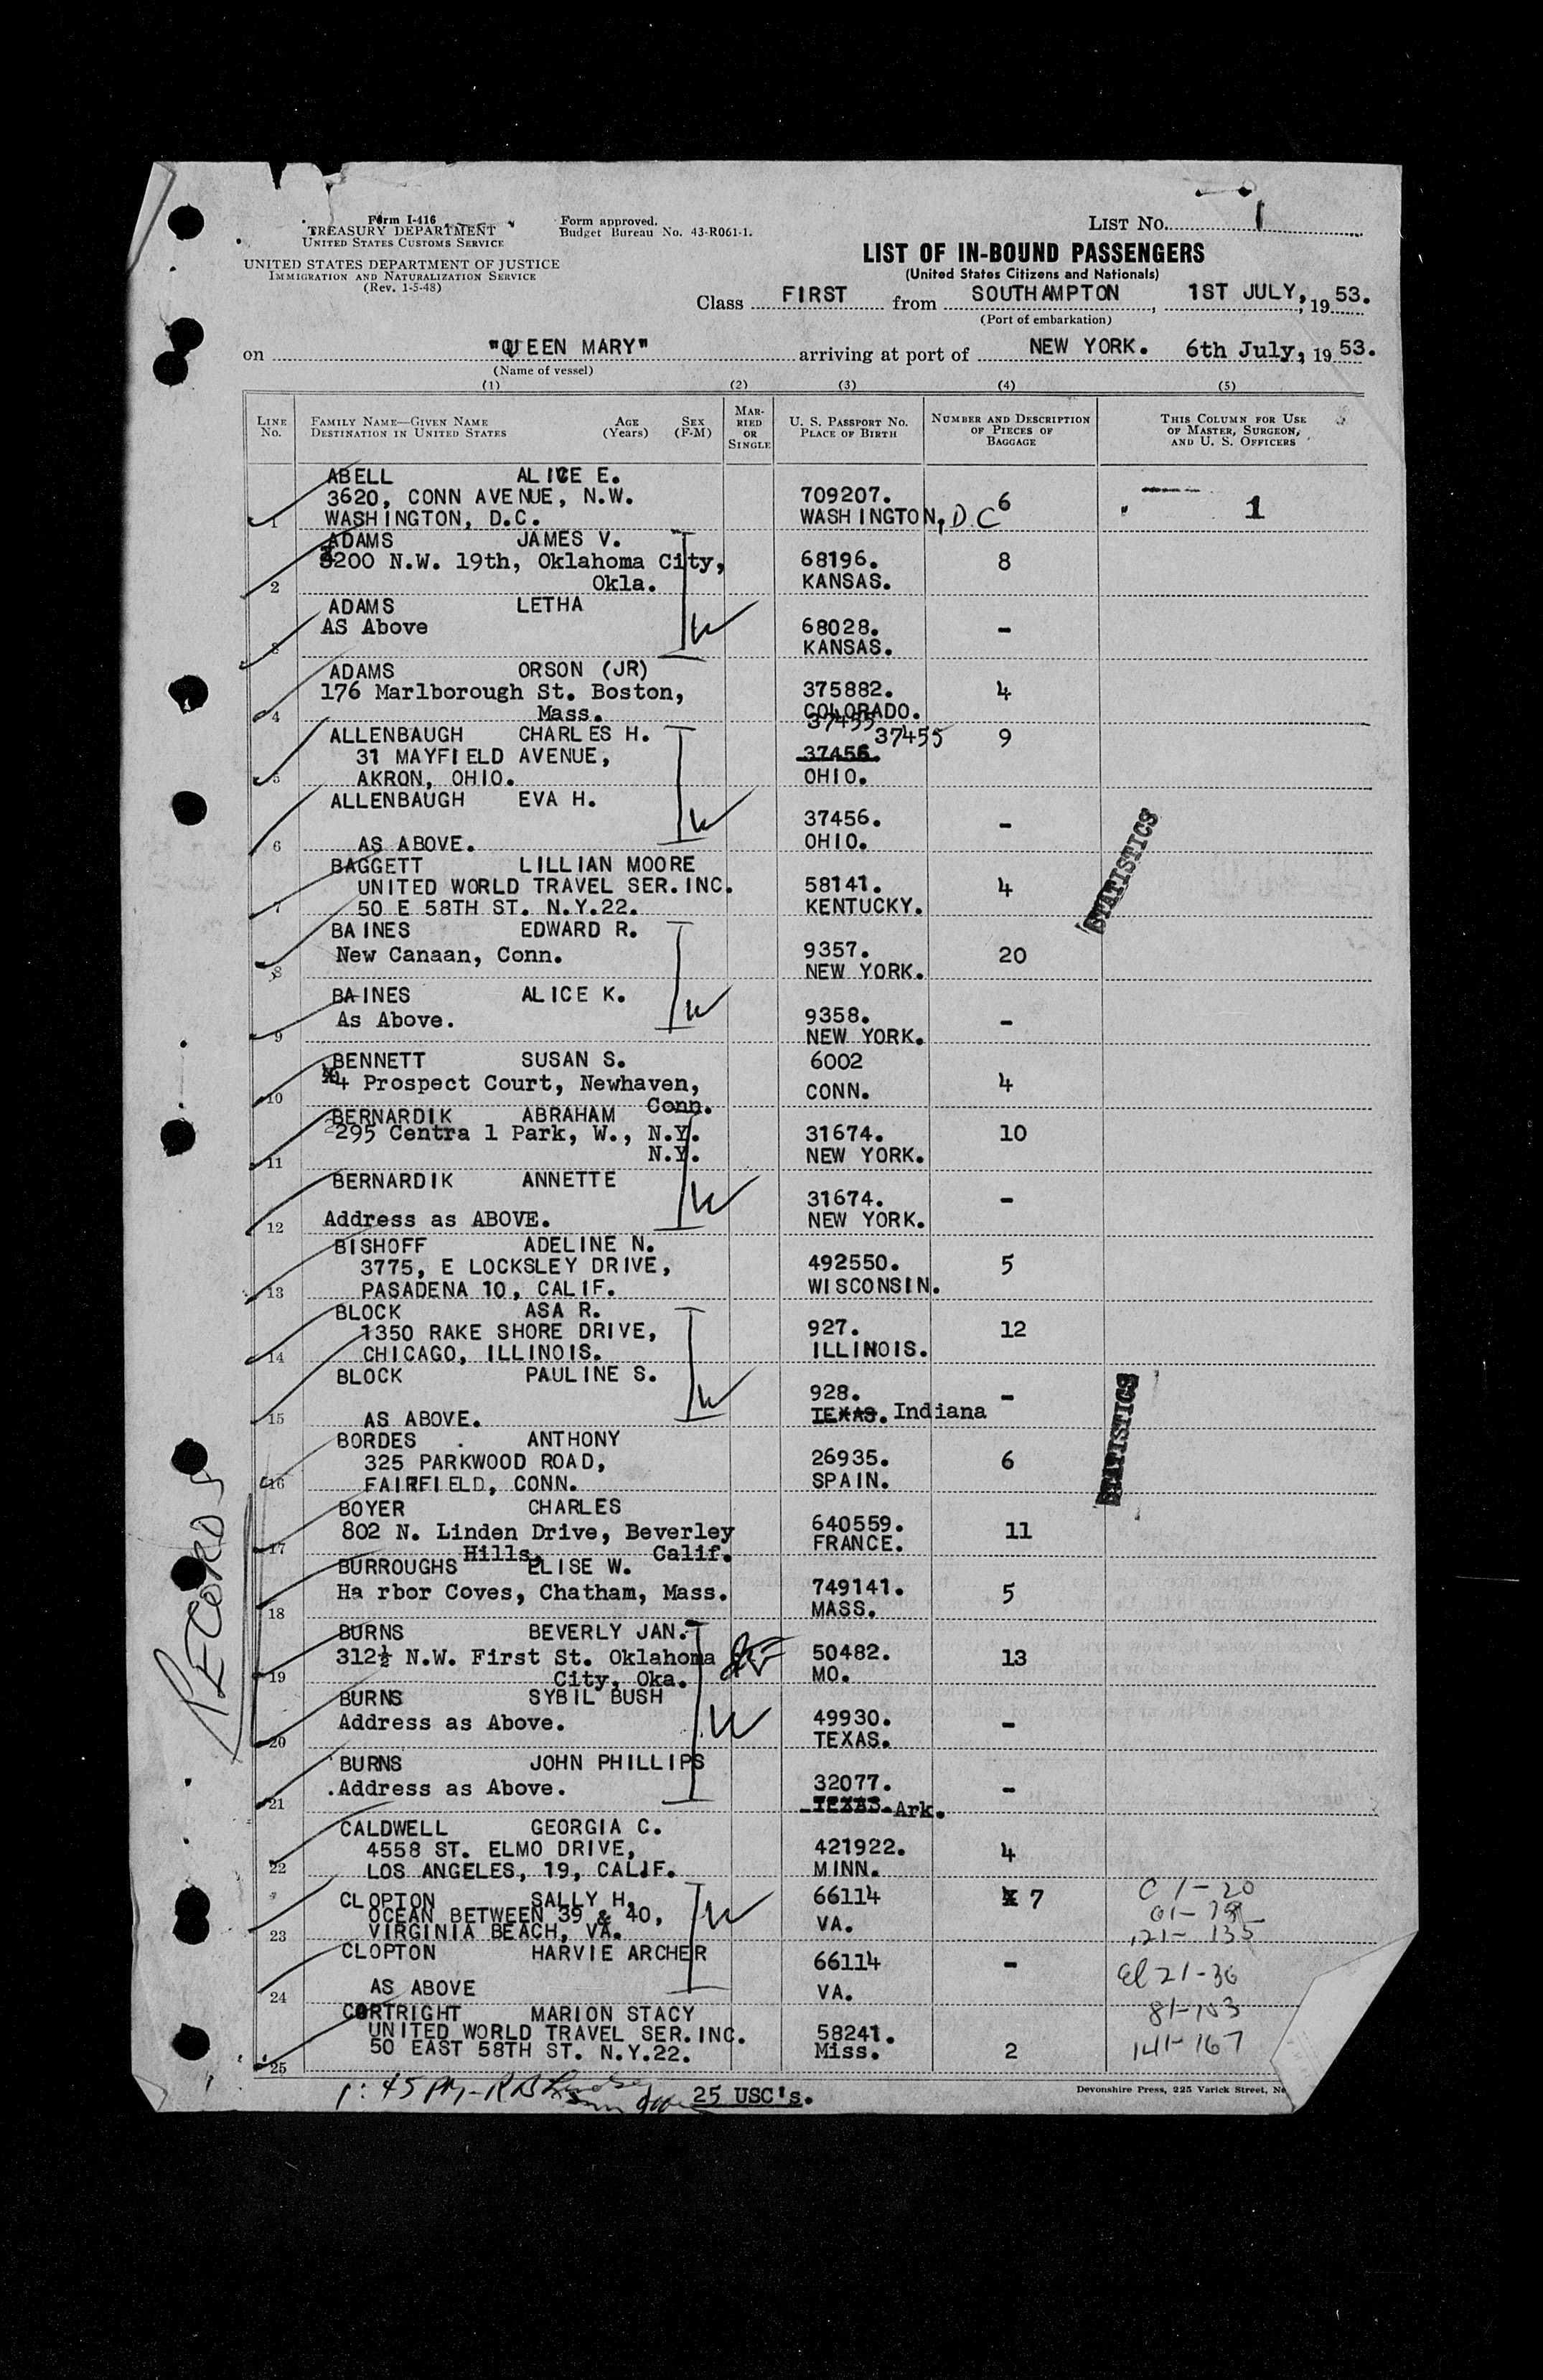 Form I-416
TREASURY DEPARTMENT
UNITED STATES CUSTOMS SERVICE
UNITED STATES DEPARTMENT OF JUSTICE
IMMIGRATION AND NATURALIZATION SERVICE
(Rev. 1-5-48)
Form approved.
Budget Bureau No. 43-R061-1.
LIST NO. 1
LIST OF IN-BOUND PASSENGERS
(United States Citizens and Nationals)
Class FIRST from SOUTHAMPTON, 1ST JULY, 1953.
(Port of embarkation)
on "QUEEN MARY" arriving at port of NEW YORK. 6th July, 1953.
(Name of vessel)
(1) (2) (3) (4) (5)
LINE NO.
FAMILY NAME—GIVEN NAME
DESTINATION IN UNITED STATES
AGE (Years)
SEX (F-M)
MARRIED OR SINGLE
U. S. PASSPORT NO.
PLACE OF BIRTH
NUMBER AND DESCRIPTION OF PIECES OF BAGGAGE
THIS COLUMN FOR USE OF MASTER, SURGEON, AND U. S. OFFICERS
ABELL ALICE E.
3620, CONN AVENUE, N.W. 709207. 6 1
1 WASHINGTON, D.C. WASHINGTON, D C
ADAMS JAMES V.
200 N.W. 19th, Oklahoma City, 68196. 8
2 Okla. KANSAS.
ADAMS LETHA
AS Above 68028. -
3 KANSAS.
ADAMS ORSON (JR)
176 Marlborough St. Boston, 375882. 4
4 Mass. COLORADO.
37455
ALLENBAUGH CHARLES H. 37455 9
31 MAYFIELD AVENUE, 37456.
5 AKRON, OHIO. OHIO.
ALLENBAUGH EVA H.
37456. -
6 AS ABOVE. OHIO.
BAGGETT LILLIAN MOORE
UNITED WORLD TRAVEL SER.INC. 58141. 4
7 50 E 58TH ST. N.Y.22. KENTUCKY.
STATISTICS
BAINES EDWARD R.
New Canaan, Conn. 9357. 20
8 NEW YORK.
BAINES ALICE K.
As Above. 9358. -
9 NEW YORK.
BENNETT SUSAN S. 6002
4 Prospect Court, Newhaven, 4
10 Conn. CONN.
BERNARDIK ABRAHAM
295 Centra l Park, W., N.Y. 31674. 10
11 N.Y. NEW YORK.
BERNARDIK ANNETTE
31674. -
12 Address as ABOVE. NEW YORK.
BISHOFF ADELINE N.
3775, E LOCKSLEY DRIVE, 492550. 5
13 PASADENA 10, CALIF. WISCONSIN.
BLOCK ASA R.
1350 RAKE SHORE DRIVE, 927. 12
14 CHICAGO, ILLINOIS. ILLINOIS.
BLOCK PAULINE S.
928. -
15 AS ABOVE. TEXAS. Indiana
STATISTICS
BORDES ANTHONY
325 PARKWOOD ROAD, 26935. 6
16 FAIRFIELD, CONN. SPAIN.
BOYER CHARLES
802 N. Linden Drive, Beverley 640559. 11
17 Hills, Calif. FRANCE.
BURROUGHS ELISE W.
Ha rbor Coves, Chatham, Mass. 749141. 5
18 MASS.
BURNS BEVERLY JAN.
312½ N.W. First St. Oklahoma 50482. 13
19 City, Oka. MO.
BURNS SYBIL BUSH
Address as Above. 49930. -
20 TEXAS.
BURNS JOHN PHILLIPS
Address as Above. 32077. -
21 TEXAS. Ark.
CALDWELL GEORGIA C.
4558 ST. ELMO DRIVE, 421922. 4
22 LOS ANGELES, 19, CALIF. MINN.
CLOPTON SALLY H. 66114 7
OCEAN BETWEEN 39 & 40,
23 VIRGINIA BEACH, VA. VA.
CLOPTON HARVIE ARCHER 66114 -
24 AS ABOVE VA.
CORTRIGHT MARION STACY
UNITED WORLD TRAVEL SER.INC. 58241.
25 50 EAST 58TH ST. N.Y.22. Miss. 2
C 1-20
121-135
21-36
81-103
141-167
RECORDS
1:45 PM
25 USC's.
Devonshire Press, 225 Varick Street,